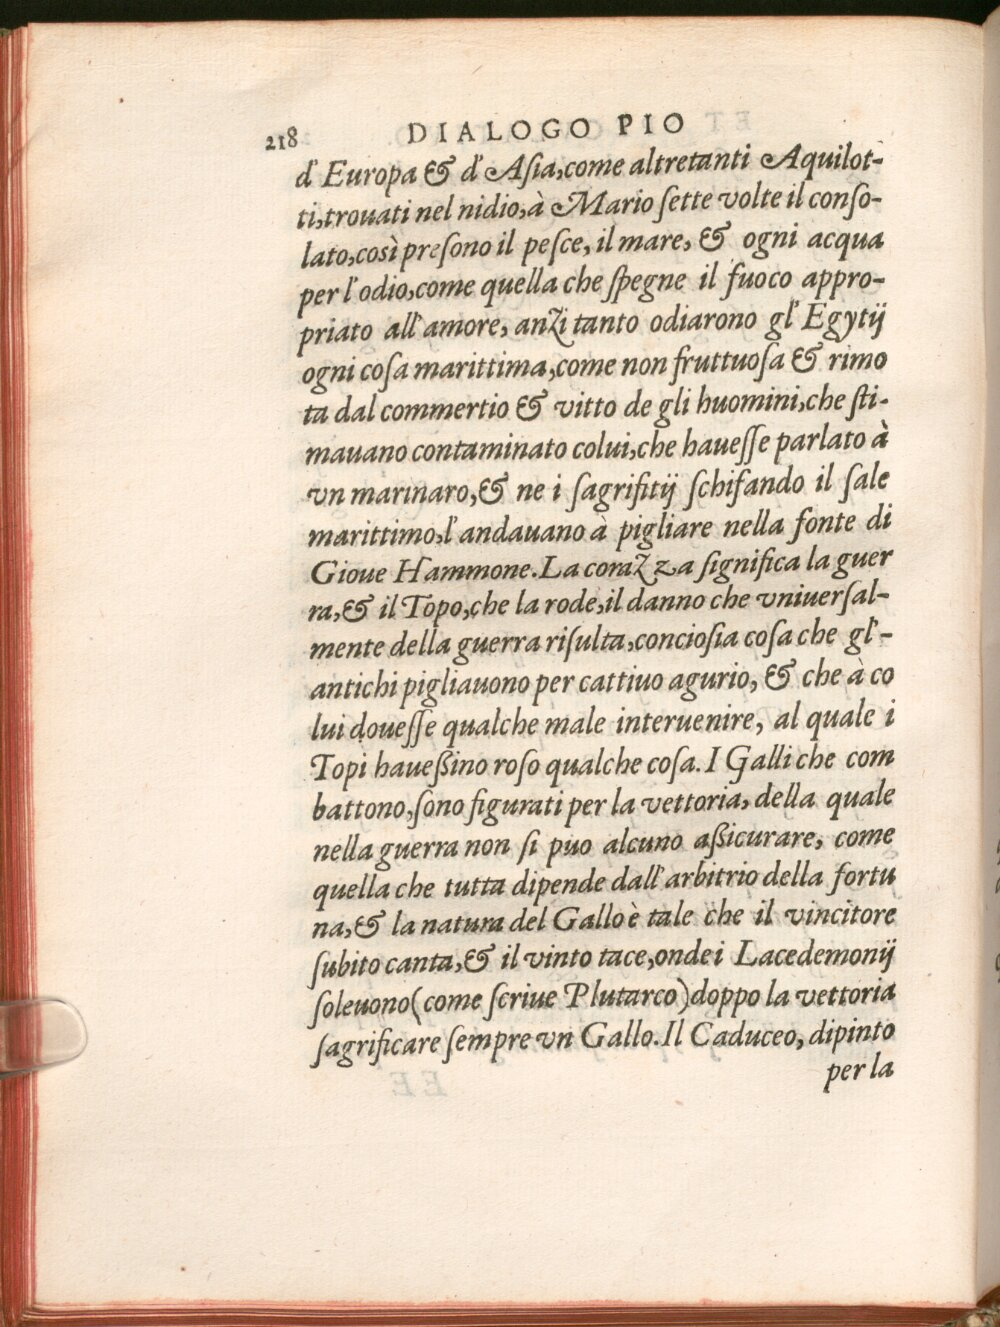 218 DIALOGO PIO
d'Europa & d'Asia, come altretanti Aquilot-
ti, trouati nel nidio, à Mario sette volte il conso-
lato, così presono il pesce, il mare, & ogni acqua
per l'odio, come quella che spegne il fuoco appro-
priato all'amore, anzi tanto odiarono gl'Egytij
ogni cosa marittima, come non fruttuosa & rimo
ta dal commertio & vitto de gli huomini, che sti-
mauano contaminato colui, che hauesse parlato à
vn marinaro, & ne i sagrifitij schifando il sale
marittimo, l'andauano à pigliare nella fonte di
Gioue Hammone. La corazza significa la guer
ra, & il Topo, che la rode, il danno che vniuersal-
mente della guerra risulta, conciosia cosa che gl'-
antichi pigliauono per cattiuo agurio, & che à co
lui douesse qualche male interuenire, al quale i
Topi haueßino roso qualche cosa. I Galli che com
battono, sono figurati per la vettoria, della quale
nella guerra non si puo alcuno aßicurare, come
quella che tutta dipende dall'arbitrio della fortu
na, & la natura del Gallo è tale che il vincitore
subito canta, & il vinto tace, onde i Lacedemonij
soleuono (come scriue Plutarco) doppo la vettoria
sagrificare sempre vn Gallo. Il Caduceo, dipinto
per la